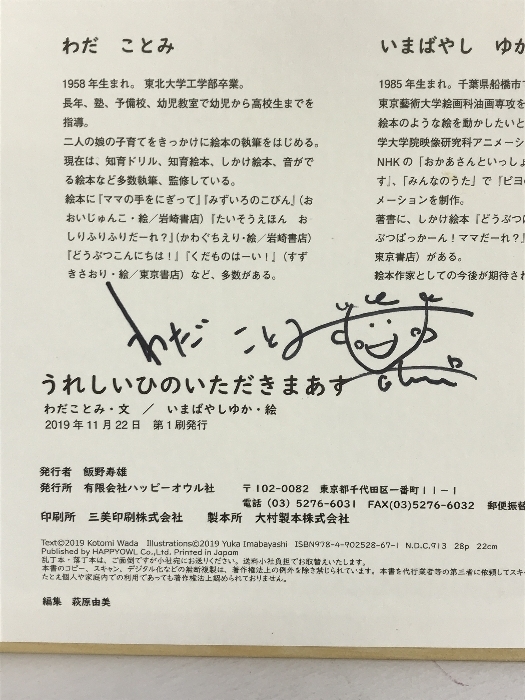 わだ ことみ
1958年生まれ。東北大学工学部卒業。
長年、塾、予備校、幼児教室で幼児から高校生までを
指導。
二人の娘の子育てをきっかけに絵本の執筆をはじめる。
現在は、知育ドリル、知育絵本、しかけ絵本、音がで
る絵本など多数執筆、監修している。
絵本に『ママの手をにぎって』『みずいろのこびん』（お
おいじゅんこ・絵／岩崎書店）『たいそうえほん お
しりふりふりだーれ？』（かわぐちえり・絵／岩崎書店）
『どうぶつこんにちは！』『くだものはーい！』（すず
きさおり・絵／東京書店）など、多数がある。
いまばやし ゆか
1985年生まれ。千葉県船橋市
東京藝術大学絵画科油画専攻を
絵本のような絵を動かしたいと
学大学院映像研究科アニメーシ
NHKの「おかあさんといっしょ
す』、「みんなのうた」で『ピヨ
メーションを制作。
著書に、しかけ絵本『どうぶつ
ぶつぱっかーん！ママだーれ？』
東京書店）がある。
絵本作家としての今後が期待され
わだ ことみ
うれしいひのいただきまあす
わだことみ・文 ／ いまばやしゆか・絵
2019年11月22日 第1刷発行
発行者 飯野寿雄
発行所 有限会社ハッピーオウル社 〒102-0082 東京都千代田区一番町11－1
電話（03）5276-6031 FAX（03）5276-6032 郵便振替
印刷所 三美印刷株式会社 製本所 大村製本株式会社
Text©2019 Kotomi Wada Illustrations©2019 Yuka Imabayashi ISBN978-4-902528-67-1 N.D.C.913 28p 22cm
Published by HAPPYOWL Co.,Ltd. Printed in Japan
乱丁本・落丁本は、ご面倒ですが小社宛にお送りください。送料小社負担でお取替えいたします。
本書のコピー、スキャン、デジタル化などの無断複製は、著作権法上の例外を除き禁じられています。本書を代行業者等の第三者に依頼してスキ
たとえ個人や家庭内での利用であっても著作権法上認められておりません。
編集 萩原由美